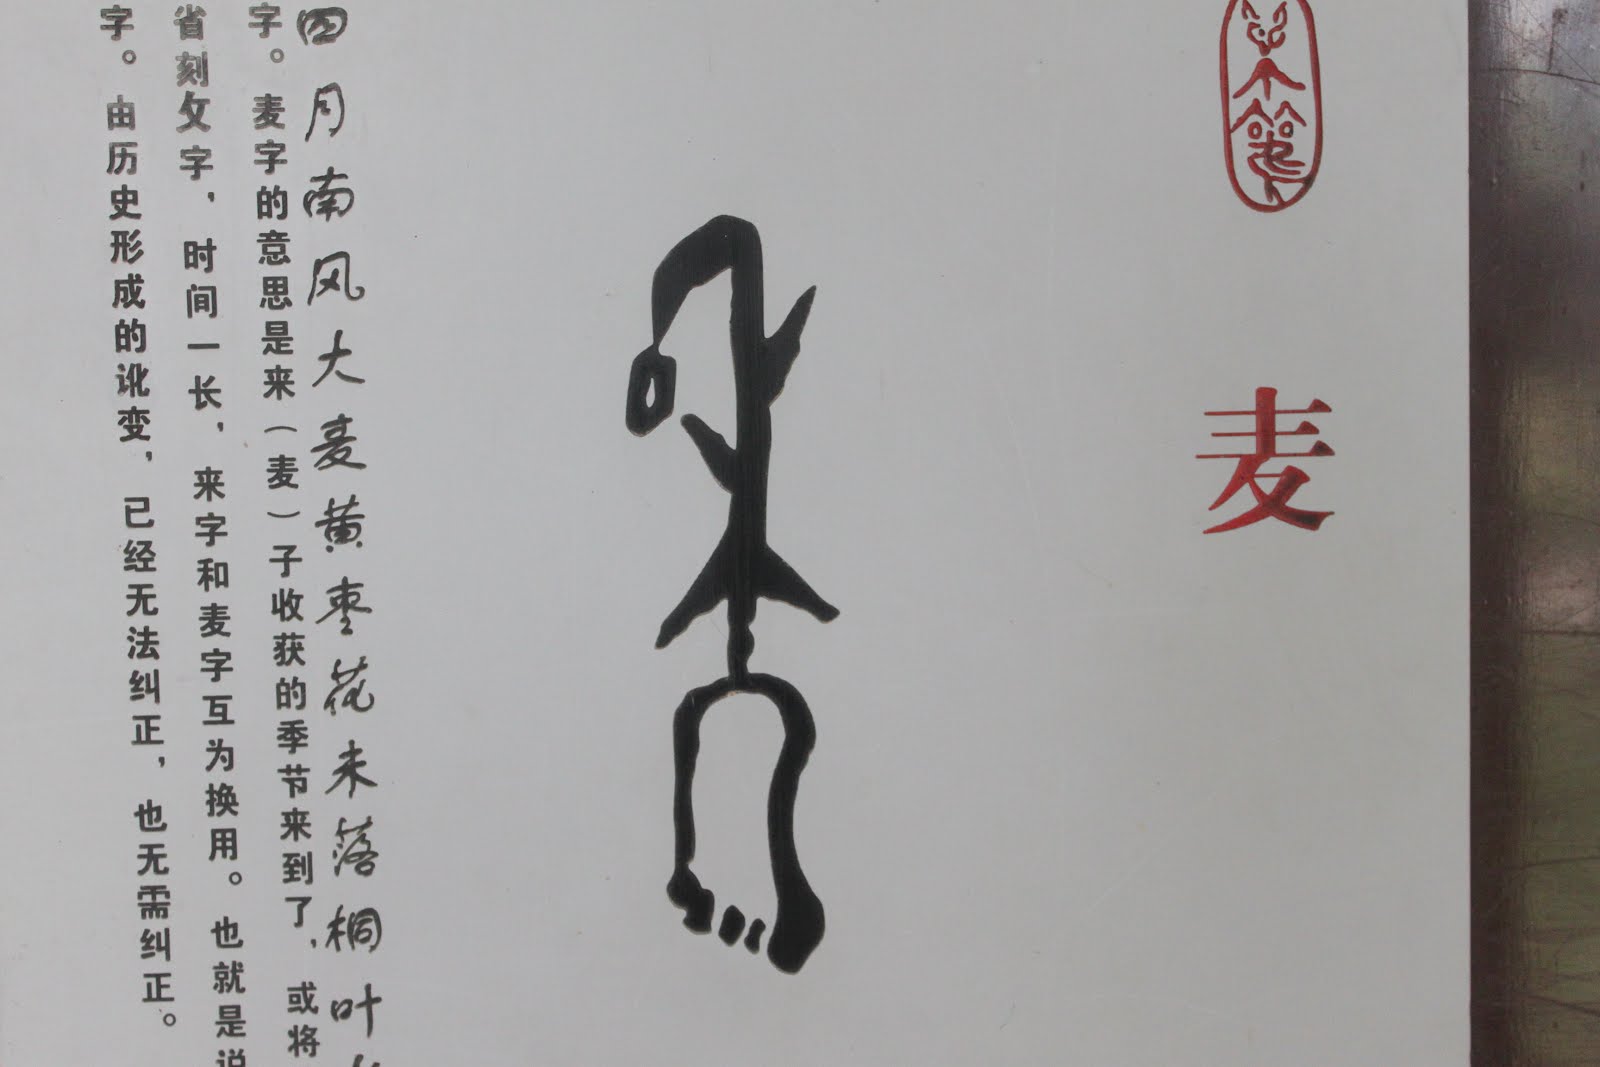 麦
四月南风大麦黄枣花未落桐叶
字。麦字的意思是来（麦）子收获的季节来到了，或将
省刻攵字，时间一长，来字和麦字互为换用。也就是说
字。由历史形成的讹变，已经无法纠正，也无需纠正。